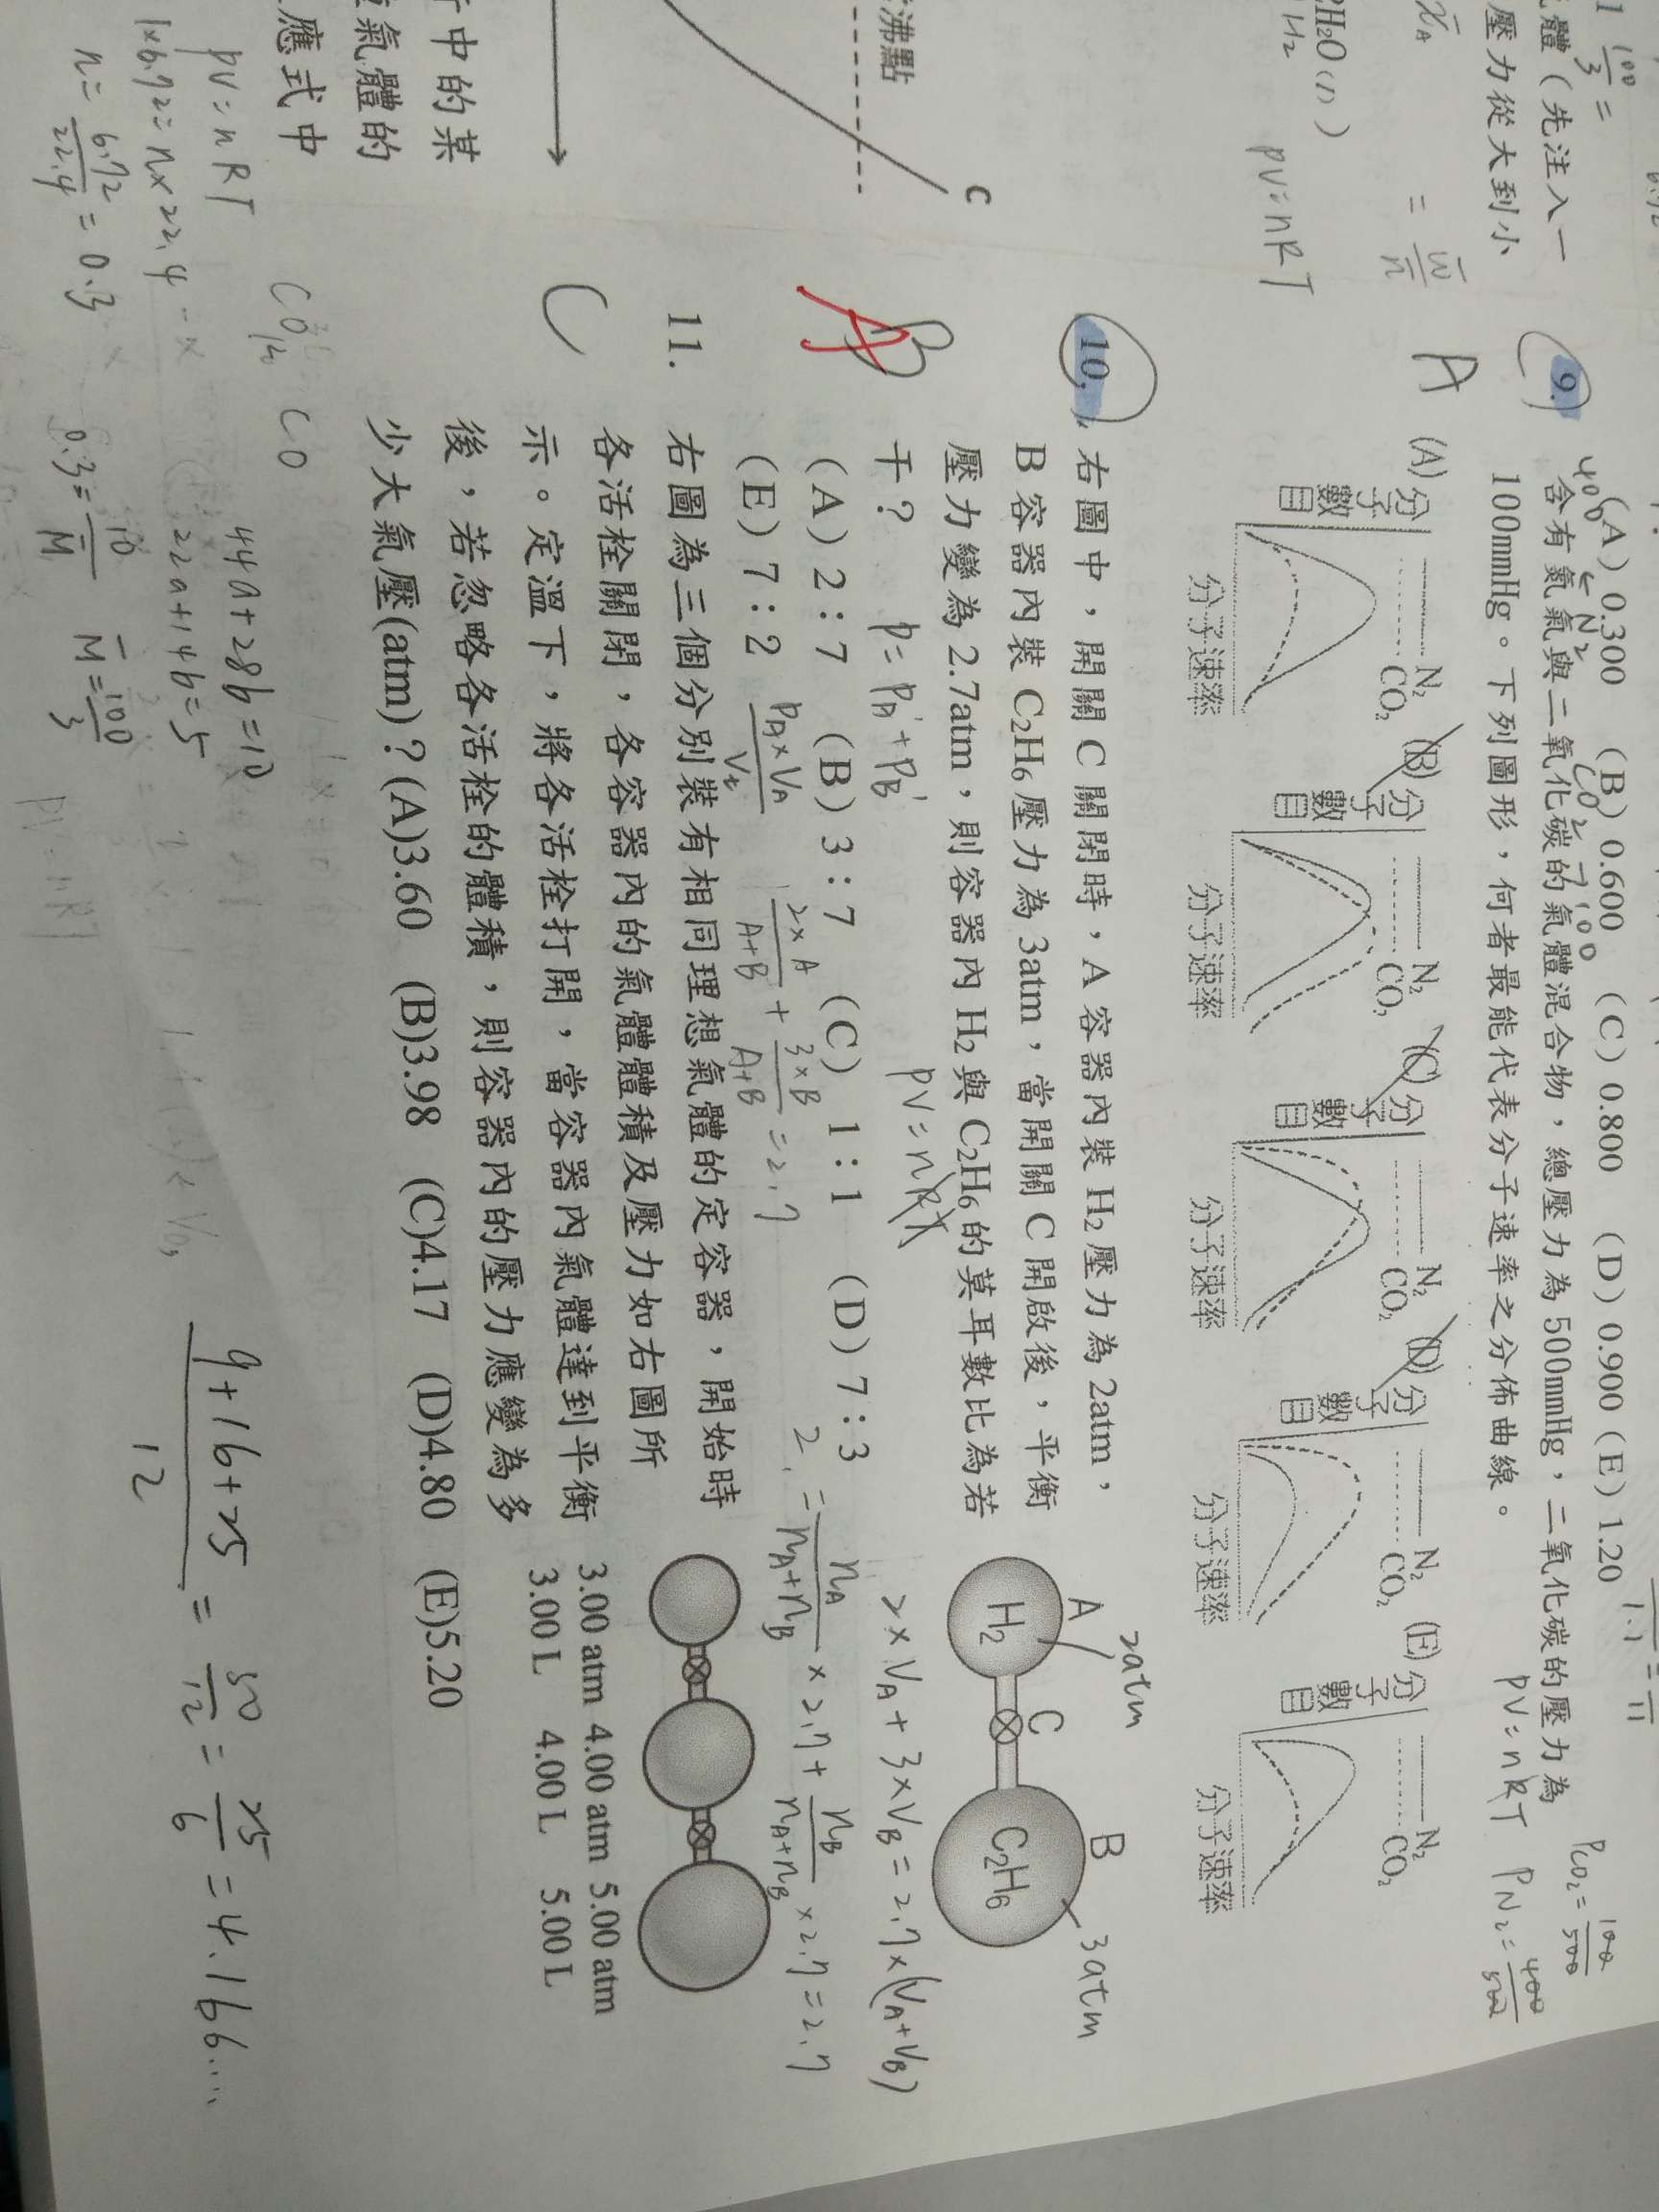 1 100/3 =
體（先注入一
壓力從大到小
x̄A
= w̄/n
H₂O(l)
H₂
PV=nRT
沸點
C
中的某
氣體的
應式中
PV=nRT
1×6.72=n×22.4
n=6.72/22.4=0.3
(A) 0.300 (B) 0.600 (C) 0.800 (D) 0.900 (E) 1.20
400 ← N₂ CO₂ → 100
9. 含有氮氣與二氧化碳的氣體混合物，總壓力為 500mmHg，二氧化碳的壓力為
100mmHg。下列圖形，何者最能代表分子速率之分佈曲線。
A
PV=nRT PN₂=400/500
PCO₂=100/500
(A) 分子數目 N₂ CO₂ 分子速率
(B) 分子數目 N₂ CO₂ 分子速率
(C) 分子數目 N₂ CO₂ 分子速率
(D) 分子數目 N₂ CO₂ 分子速率
(E) 分子數目 N₂ CO₂ 分子速率
10. 右圖中，開關 C 關閉時，A 容器內裝 H₂ 壓力為 2atm，
B 容器內裝 C₂H₆ 壓力為 3atm，當開關 C 開啟後，平衡
壓力變為 2.7atm，則容器內 H₂ 與 C₂H₆ 的莫耳數比為若
干？
P=PA'+PB'
PV=nRT
B
A
(A) 2：7 (B) 3：7 (C) 1：1 (D) 7：3
(E) 7：2
PA×VA/Vt
2×A/A+B + 3×B/A+B =2.7
A 2atm
H₂
C
B 3atm
C₂H₆
2×VA+3×VB=2.7×(VA+VB)
nA/nA+nB ×2.7+ nB/nA+nB ×2.7=2.7
C
11. 右圖為三個分別裝有相同理想氣體的定容器，開始時
各活栓關閉，各容器內的氣體體積及壓力如右圖所
示。定溫下，將各活栓打開，當容器內氣體達到平衡
後，若忽略各活栓的體積，則容器內的壓力應變為多
少大氣壓(atm)？(A)3.60 (B)3.98 (C)4.17 (D)4.80 (E)5.20
3.00 atm 4.00 atm 5.00 atm
3.00 L 4.00 L 5.00 L
CO
44a+28b=10
22a+14b=5
0.3=10/M M̄=100/3
9+16+25/12 = 50/12 = 25/6 =4.166....